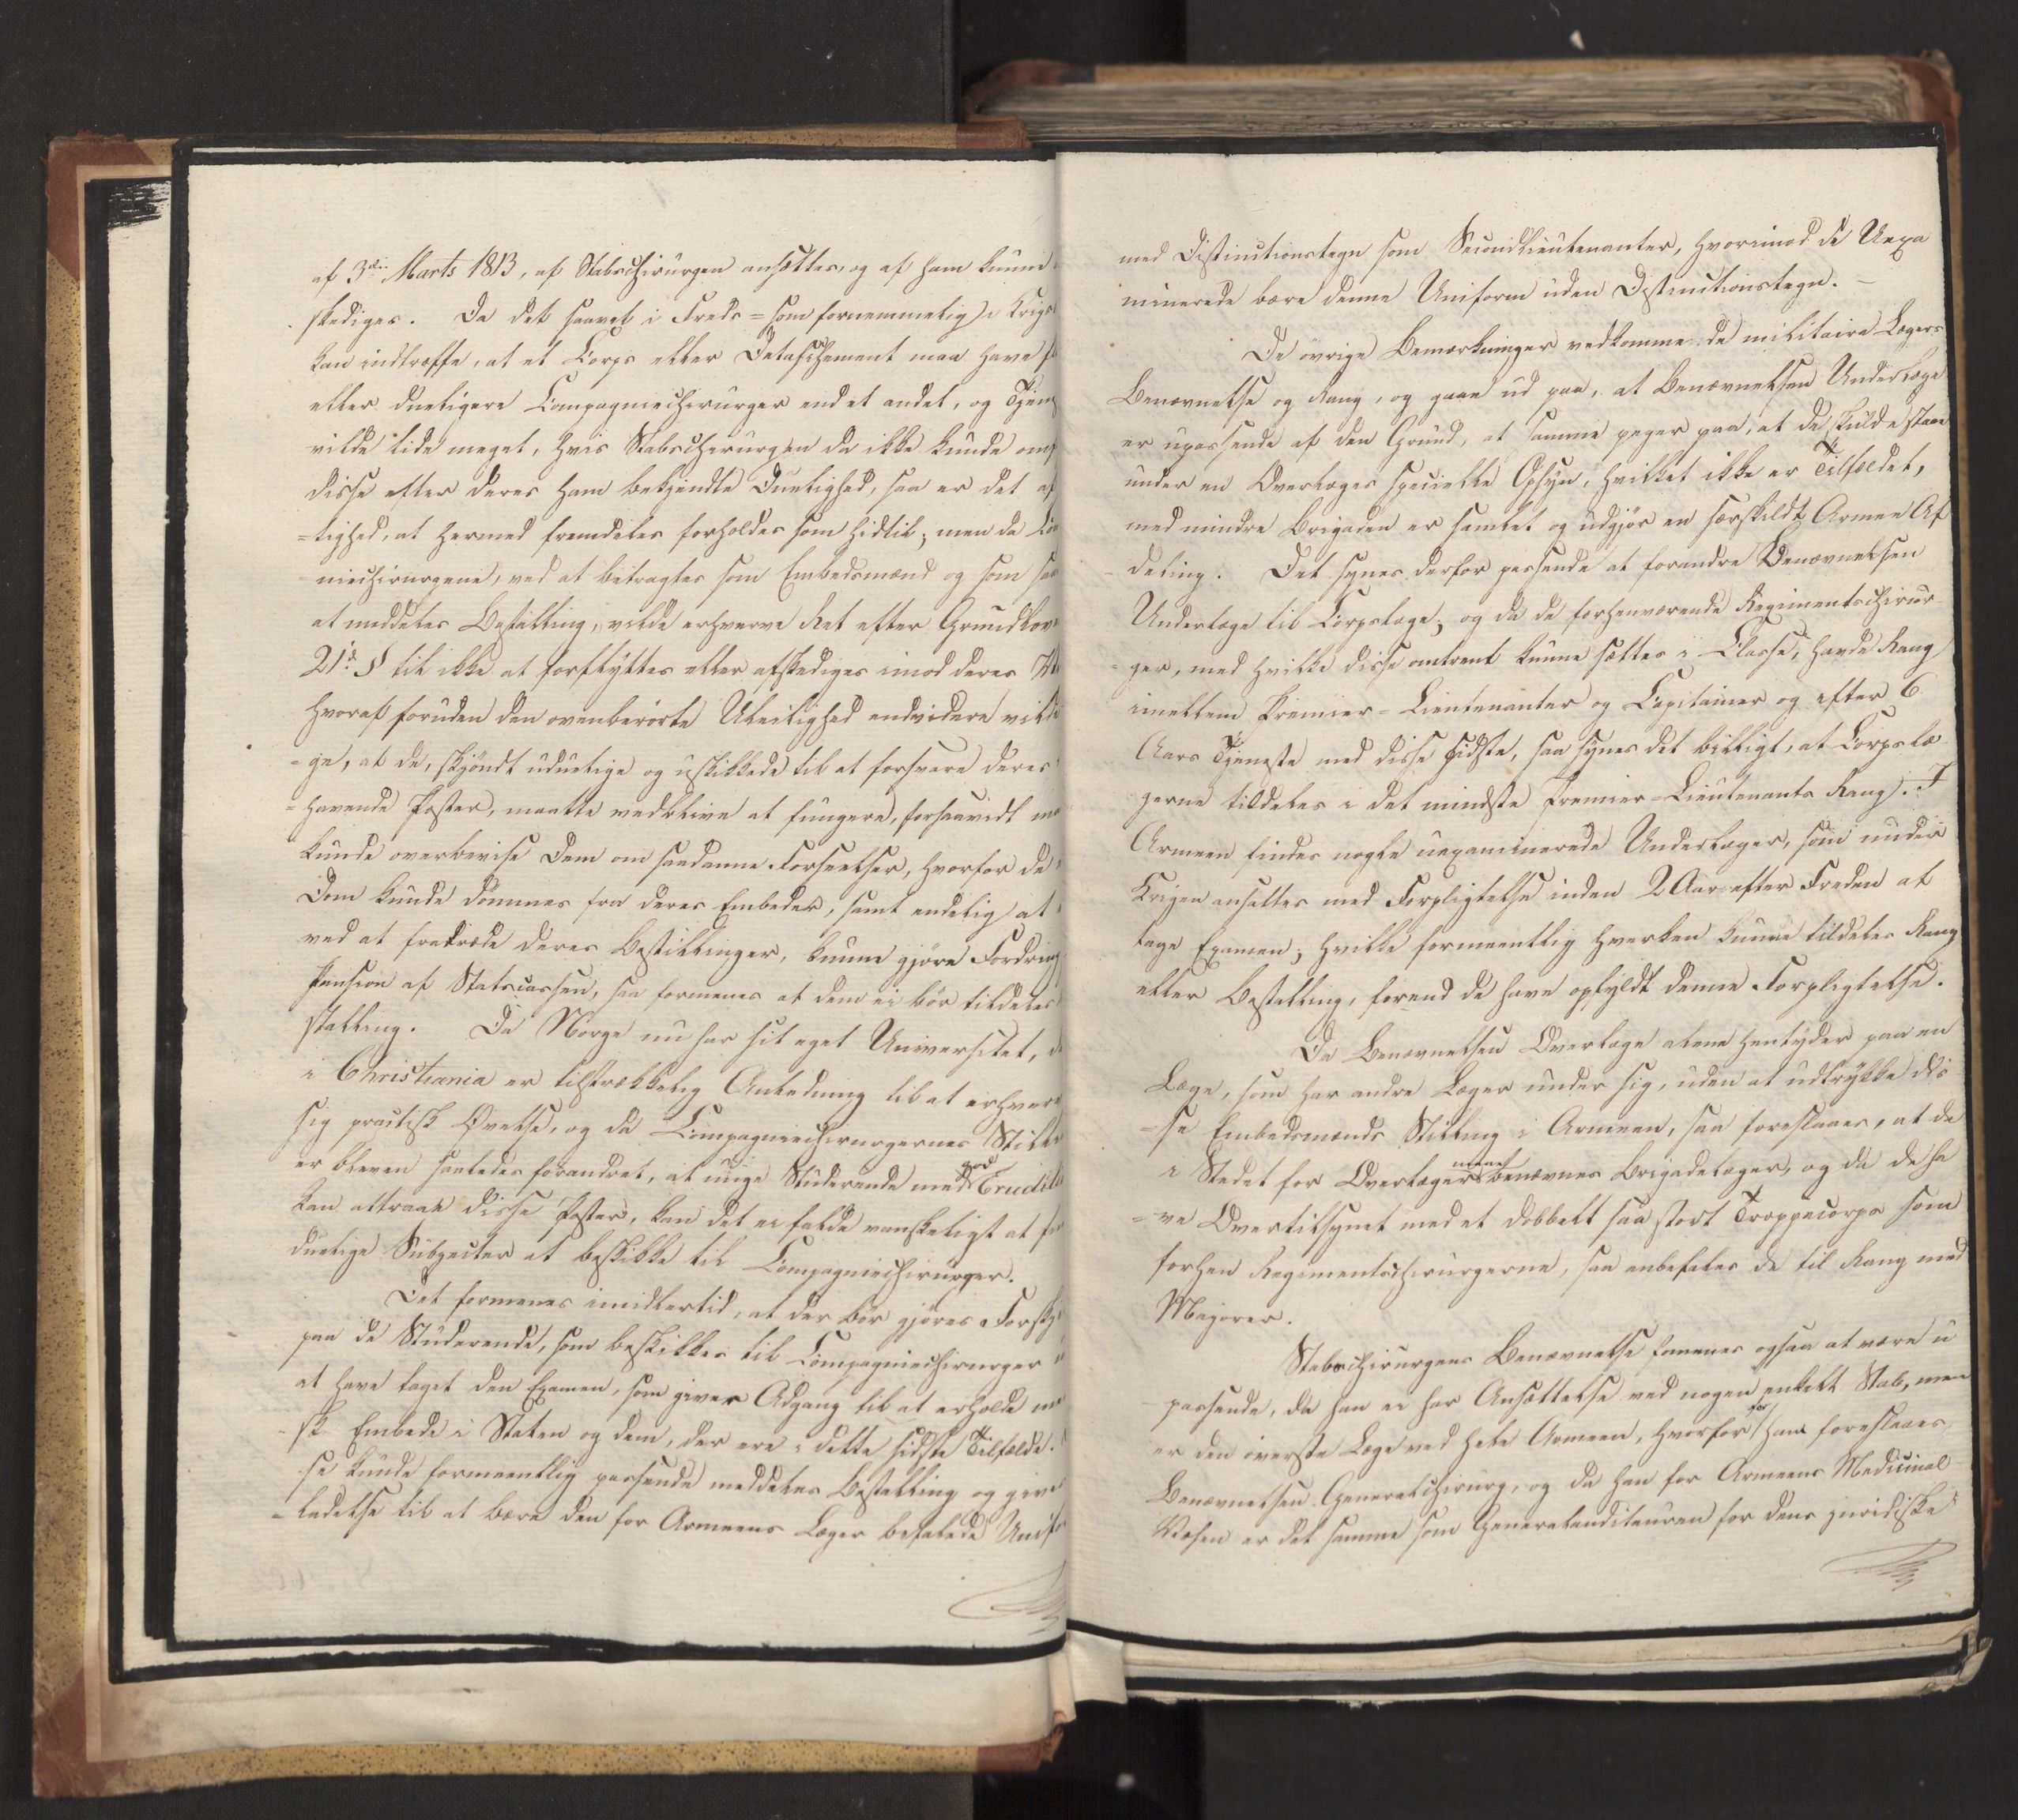 af 3die Marts 1813, af Stabschirurgen ansættes, og af ham kunne
skediges. Da det saavel i Freds= som fornemmelig i Krigs
kan indtræffe, at et Corps eller Detaschement maa have
eller dueligere Compagniechirurger end et andet, og Tjen
vilde lide meget, hvis Stabschirurgen da ikke kunde
disse efter deres ham bekjendte Duelighed, saa er det
=tighed, at hermed fremdeles forholdes som hidtil; men da
niechirurgene, ved at betragtes som Embedsmænd og som
at meddeles Bestalling, vilde erhverve Ret efter Grundlov
21de § til ikke at forflyttes eller afskediges imod deres
hvoraf foruden den ovenberørte Uleilighed endvidere vilde
=ge, at de, skjøndt uduelige og uskikkede til at forsvare deres
=havende Poster, maatte vedblive at fungere, forsaavidt
kunde overbevise dem om saadanne Forseelser, hvorfor de
Dom kunde dømmes fra deres Embeder, samt endelig at
ved at fratræde deres Bestillinger, kunne gjøre Fordring
Pension af Statscassen, saa formenes at dem ei bør tildeles
stalling. Da Norge nu har sit eget Universitet,
i Christiania er tilstrækkelig Anledning til at erhverv
sig practisk Øvelse, og da Compagniechirurgernes Still
er bleven saaledes forandret, at unge Studerende med god Erudit
kan attraae disse Poster, kan det ei falde vanskeligt at
duelige Subjecter at beskikke til Compagniechirurger.
Det formenes imidlertid, at der bør gjøres Forskj
paa de Studerende, som beskikkes til Compagniechirurger
at have taget den Examen, som giver Adgang til at erholde
=sk Embede i Staten og dem, der ere i dette sidste Tilfælde.
se kunde formeentlig passende meddeles Bestalling og give
=ladelse til at bære den for Armeens Læger befalede Unif
med Distinctionstegn som Secondlieutenanter, hvorimod de Uexa
minerede bære denne Uniform uden Distinctionstegn.
De øvrige Bemærkninger vedkomme de militaire Lægers
Benævnelse og Rang, og gaae ud paa, at Benævnelsen Underlæge
er upassende af den Grund, at samme peger paa, at de skulde staae
under en Overlæges specielle Opsyn, hvilket ikke er Tilfældet,
med mindre Brigaden er samlet og udgjør en særskildt Armee Af
deling. Det synes derfor passende at forandre Benævnelsen
Underlæge til Corpslæge; og da de forhenværende Regimentschirur
=ger, med hvilke disse omtrent kunne sættes i Classe, havde Rang
imellem Premier=Lieutenanter og Capitainer og efter 6
Aars Tjeneste med disse sidste, saa synes det billigt, at Corpslæ
gerne tildeles i det mindste Premier=Lieutenants Rang. I
Armeen findes nogle uexaminerede Underlæger, som under
Krigen ansattes med Forpligtelse inden 2 Aar efter Freden at
tage Examen; hvilke formeentlig hverken kunne tildeles Rang
eller Bestalling, førend de have opfyldt denne Forpligtelse.
Da Benævnelsen Overlæge alene hentyder paa en
Læge, som har andre Læger under sig, uden at udtrykke dis
=se Embedsmænds Stilling i Armeen, saa foreslaaes, at de
i Stedet for Overlæger benævnes Brigadelæger, og da de ha
=ve Overtilsynet med et dobbelt saa stort Troppecorps som
forhen Regimentschirurgerne, saa anbefales de til Rang med
Majorer.
Stabschirurgens Benævnelse formenes ogsaa at være u
passende, da han ei har Ansættelse ved nogen enkelt Stab, men
er den øverste Læge ved hele Armeen, hvorfor for ham foreslaaes
Benævnelsen Generalchirurg, og da han for Armeens Medicinal
Væsen er det samme som Generalauditeuren for dens juridiske